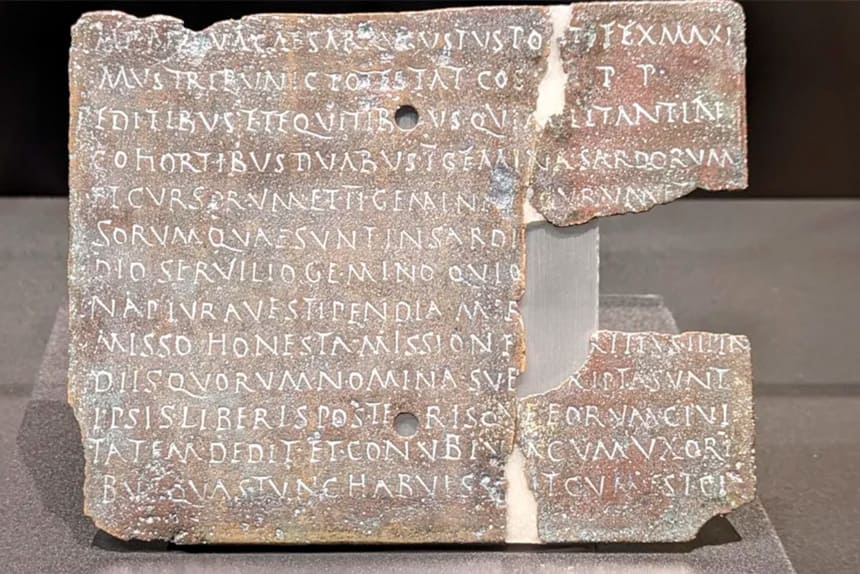 CAESAR AVGVSTVS TIFEX MAXI
MVS TRIBVNIC POTESTAT COS P P
EDITIBVS ET EQVITIBVS QVI LITANT IN
COHORTIBVS DVABVS I GEMINA SARDORVM
ET CVRSORVM ET II GEMINA VRVM
SORVM QVAE SVNT IN SARDI
DIO SERVILIO GEMINO QVI Q
NA PLVRAVE STIPENDIA MER
MISSO HONESTA MISSION
DIIS QVORVM NOMINA SVB RIPTA SVNT
IPSIS LIBERIS POSTERISQVE EORVM CIVI
TATEM DEDIT ET CONVBIVM CVM VXORI
BVS QVAS TVNC HABVISSENT CVM EST CI